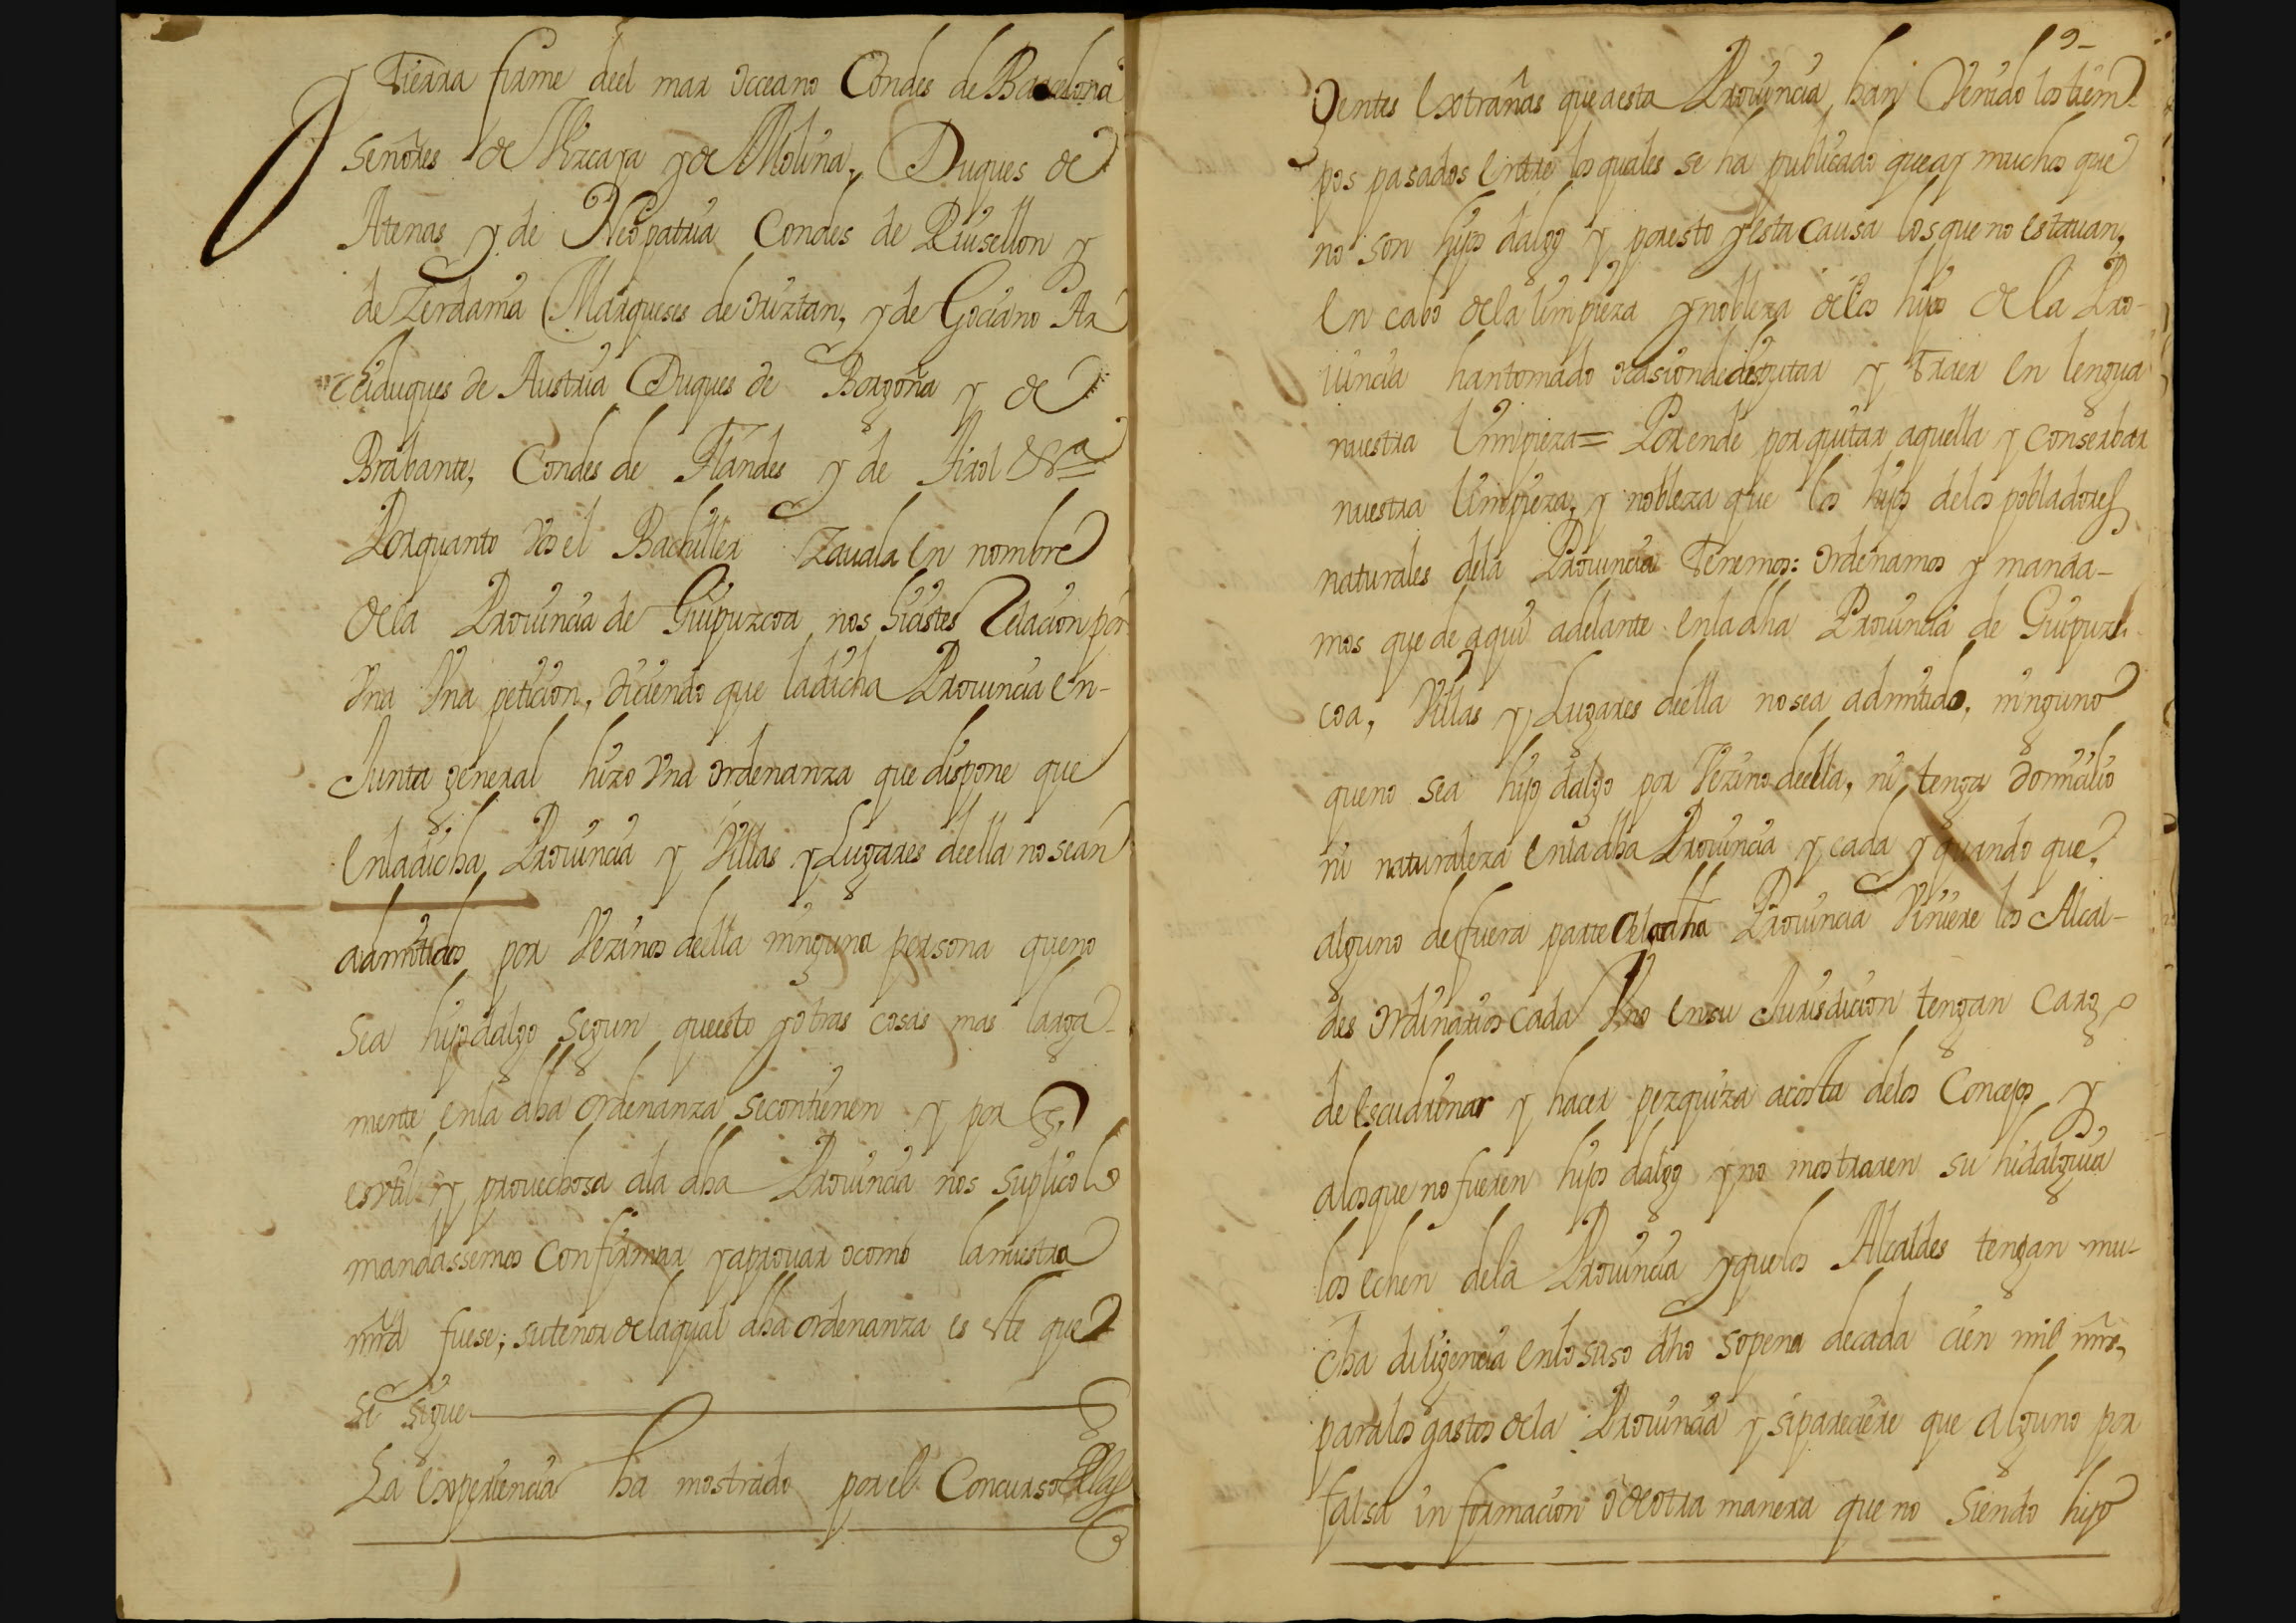 y Tierra firme deel mar occeano Condes de Barcelona
señores de Vizcaya y de Molina, Duques de
Atenas y de Neopatria Condes de Ruisellon y
de Zerdania Marqueses de oriztan, y de Gociano Ar
chiduques de Austria Duques de Borgoña y de
Brabante, Condes de Flandes y de Tirol &ª
Porquanto vos el Bachiller Zauala en nombre
de la Prouincia de Guipuzcoa nos hicistes Relacion por
Vna Vna peticion, diciendo que la dicha Prouincia en-
Junta general hizo Vna ordenanza que dispone que
en la dicha Prouincia y Villas y Lugares deella no sean
admitidos por Vezinos deella ninguna persona que no
sea hijodalgo segun que esto y otras cosas mas larga-
mente en la dha ordenanza se contienen y por q.
es vtil y prouechosa a la dha Prouincia nos suplico lo
mandassemos Confirmar y aprouar o como la nuestra
mrd fuese; su tenor de la qual dha ordenanza es este que
se sigue
La experiencia ha mostrado por el Concurso de las
19
Gentes extrañas que a esta Prouincia han Venido los tiem-
pos pasados entre los quales se ha publicado que ay muchos que
no son hijos dalgo y por esto y esta causa los que no estauan
en cabo de la limpieza y nobleza de los hijos de la Pro-
uincia han tomado ocasion de disputar y traer en lengua
nuestra limpieza = Por ende por quitar aquella y conserbar
nuestra limpieza, y nobleza que los hijos de los pobladores
naturales de la Prouincia tenemos: ordenamos y manda-
mos que de aqui adelante en la dha Prouincia de Guipuz-
coa, Villas y Lugares deella no sea admitido, ninguno
que no sea hijo dalgo por Vezino deella, ni tenga domicilio
ni naturaleza en la dha Prouincia y cada y quando que
alguno de fuera parte de la dha Prouincia Viniere los Alcal-
des ordinarios cada Vno en su Jurisdicion tengan cargo
de escudrinar y hacer pezquiza a costa de los Concejos y
a los que no fueren hijos dalgo y no mostraren su hidalguia
los echen de la Prouincia y que los Alcaldes tengan mu-
cha diligencia en lo suso dho so pena de cada cien mil mrs,
para los gastos de la Prouincia y si pareciere que alguno por
falsa informacion o de otra manera que no siendo hijo